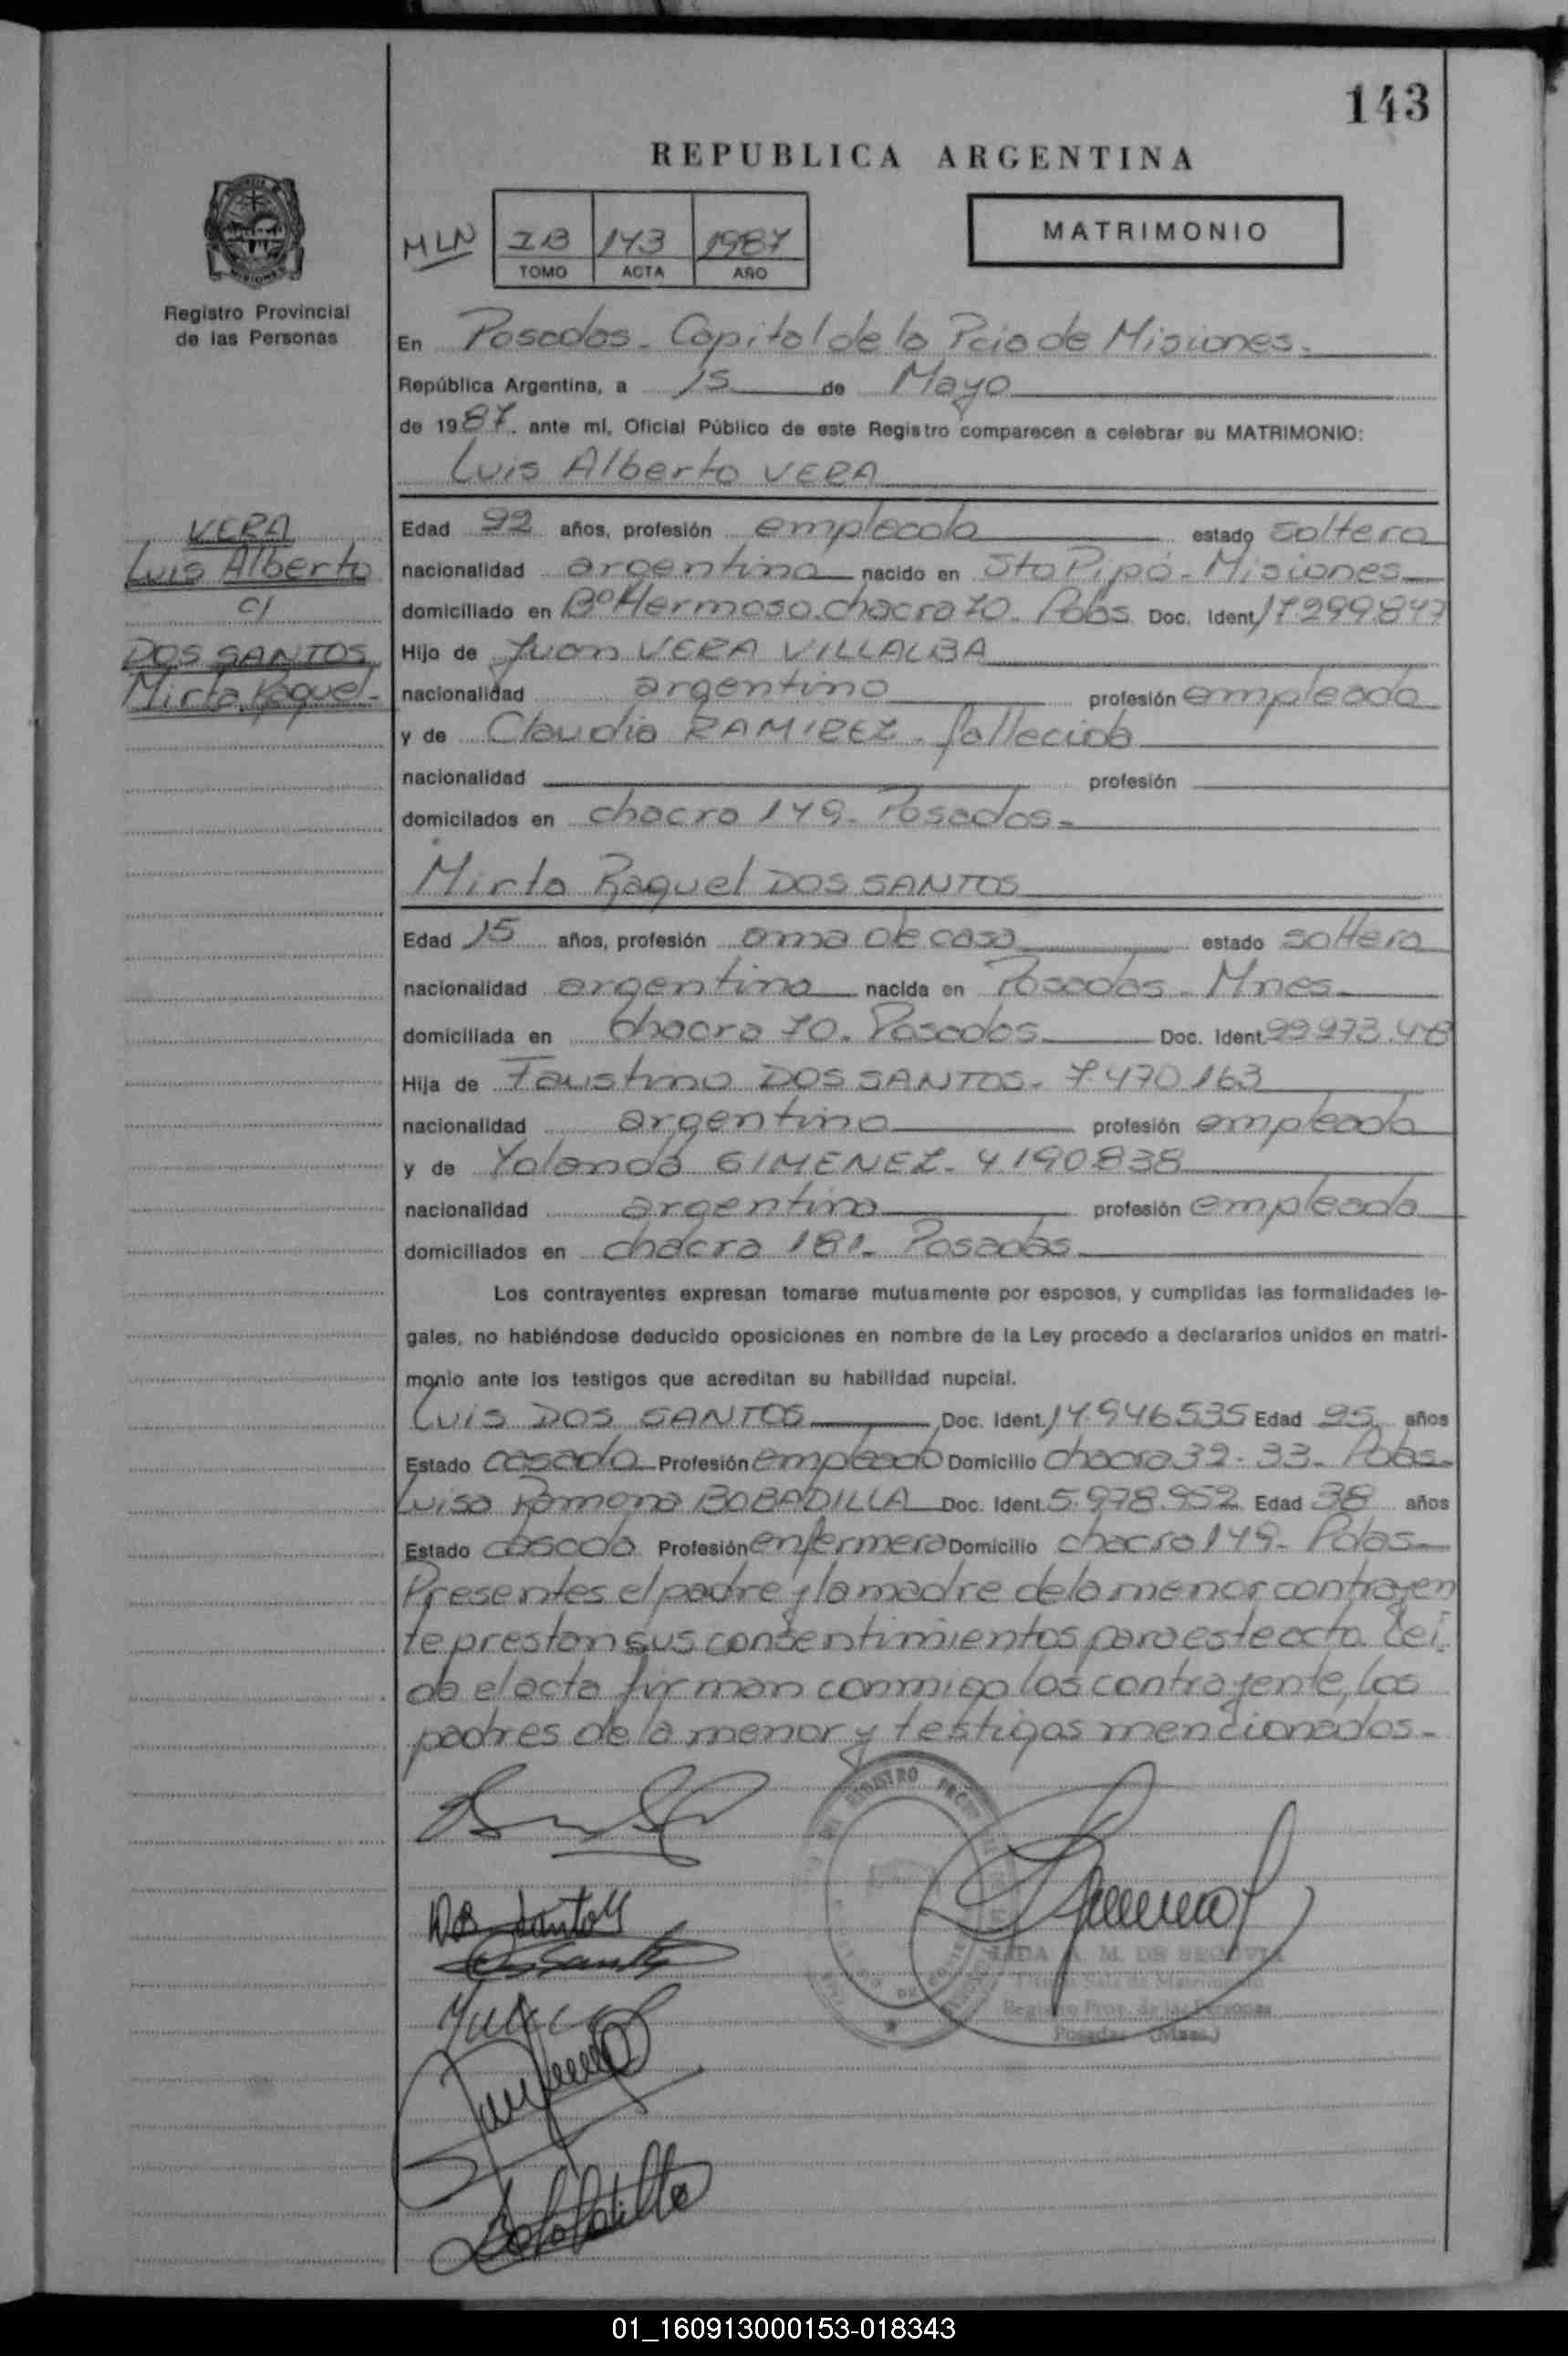 143
REPUBLICA ARGENTINA
MLN
IB 143 1987
TOMO ACTA AÑO
MATRIMONIO
Registro Provincial
de las Personas
En Posadas - Capital de la Pcia de Misiones -
República Argentina, a 15 de Mayo
de 1987. ante mí, Oficial Público de este Registro comparecen a celebrar su MATRIMONIO:
Luis Alberto VERA
VERA
Luis Alberto
c/
DOS SANTOS
Mirta Raquel -
Edad 22 años, profesión empleado estado soltero
nacionalidad argentino nacido en Sto Pipó - Misiones
domiciliado en Bº Hermoso. chacra 70 - Pdas Doc. Ident. 17.299.847
Hijo de Juan VERA VILLALBA
nacionalidad argentino profesión empleado
y de Claudia RAMIREZ - fallecida
nacionalidad profesión
domiciliados en chacra 149 - Posadas -
Mirta Raquel DOS SANTOS
Edad 15 años, profesión ama de casa estado soltera
nacionalidad argentina nacida en Posadas - Mnes -
domiciliada en chacra 70 - Posadas Doc. Ident. 22.973.478
Hija de Faustino DOS SANTOS - 7.470.163
nacionalidad argentino profesión empleado
y de Yolanda GIMENEZ - 4.190.838
nacionalidad argentina profesión empleada
domiciliados en chacra 181 - Posadas
Los contrayentes expresan tomarse mutuamente por esposos, y cumplidas las formalidades le-
gales, no habiéndose deducido oposiciones en nombre de la Ley procedo a declararlos unidos en matri-
monio ante los testigos que acreditan su habilidad nupcial.
Luis DOS SANTOS Doc. Ident. 14.946.535 Edad 25 años
Estado casado Profesión empleado Domicilio chacra 32-33 - Pdas -
Luisa Ramona BOBADILLA Doc. Ident. 5.978.952 Edad 38 años
Estado casada Profesión enfermera Domicilio chacra 149 - Pdas -
Presentes el padre y la madre de la menor contrayen
te prestan sus consentimientos para este acto. Lei
da el acta firman conmigo los contrayente, los
padres de la menor y testigos mencionados -
Dos Santos
A. M. DE SEGOVIA
Titular Sala de Matrimonio
Registro Prov. de las Personas
Posadas (Mnes.)
01_160913000153-018343